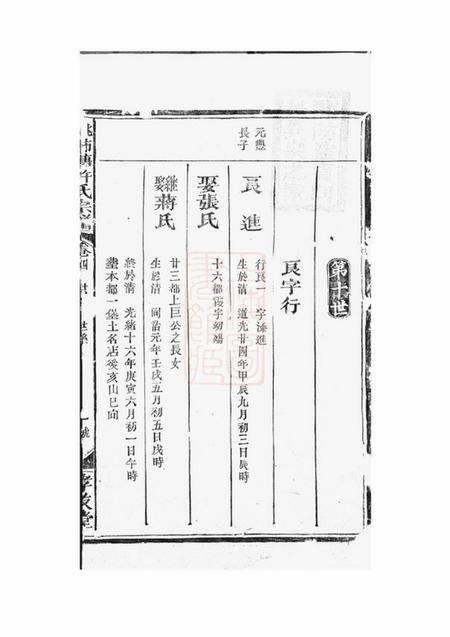 第十世
良字行
元豐
長子
良進
行良一 字添進
生於清 道光廿四年甲辰九月初三日辰時
娶張氏
十六都霞宇幼
繼娶蔣氏
廿三都上巨公之長女
生於清 同治元年壬戌五月初五日戌時
終於清 光緒十六年庚寅六月初一日午時
塟本都一堡土名店後亥山巳向
許氏宗譜
卷四
世系
一號
孝友堂